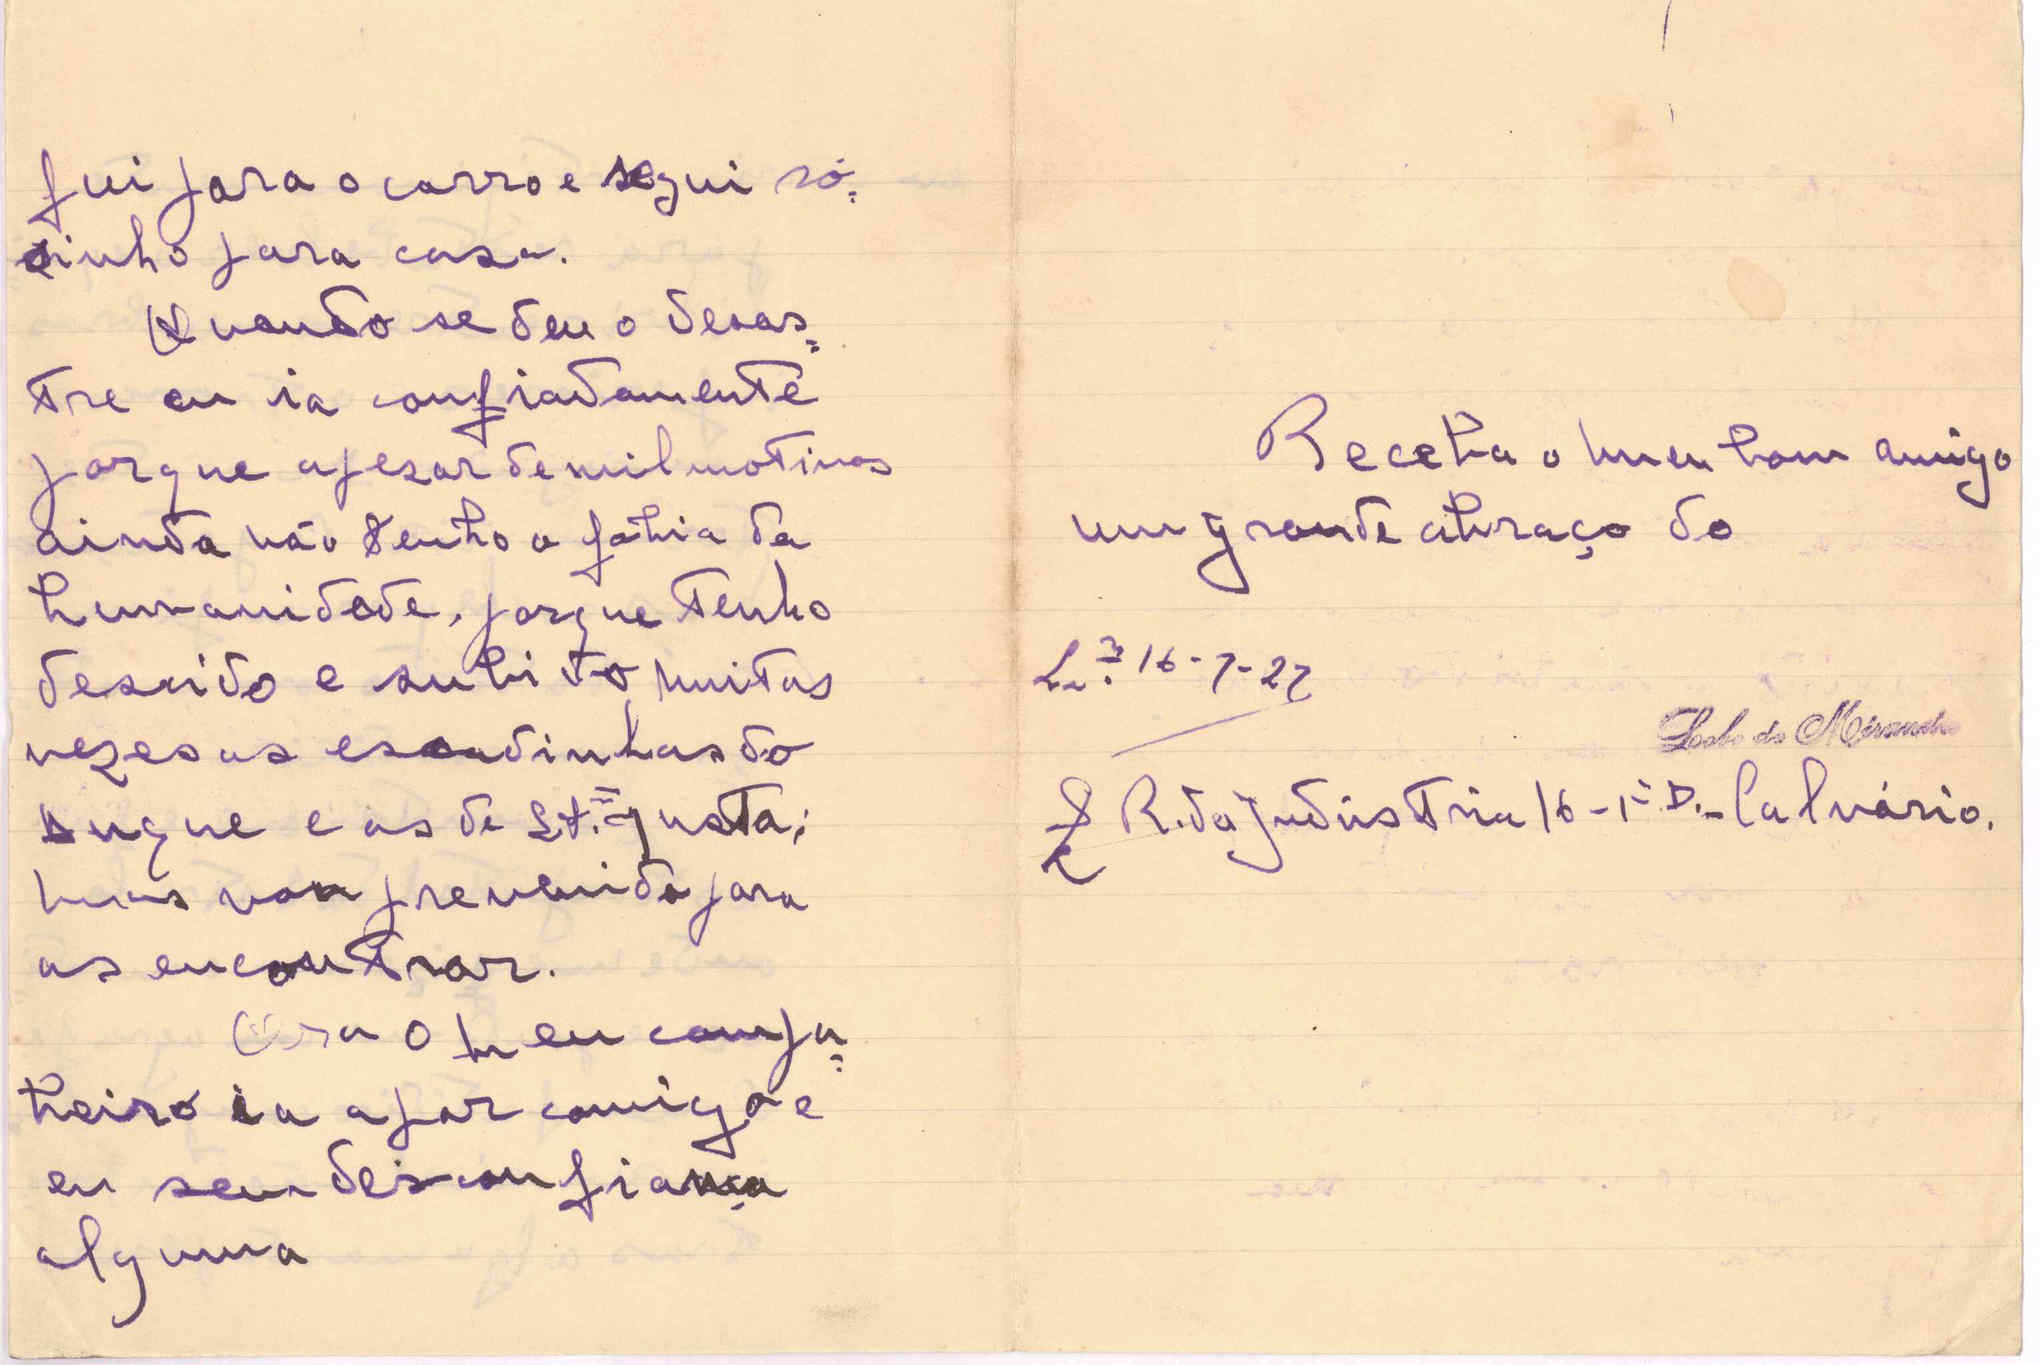 fui para o carro e segui só-
sinho para casa.
Quando se deu o desas-
tre eu ia confiadamente
porque apesar de mil motivos
ainda não tenho a fobia da
humanidade, porque tenho
descido e subido muitas
vezes as escadinhas do
Duque e as de St.ª Justa,
mas vou prevenido para
as encontrar.
Ora o meu compa-
heiro ia a par comigo e
eu sem desconfiança
alguma
Receba o meu bom amigo
um grande abraço do
Lx.ª 16-7-27
Lobo de Miranda
R. da Industria 16-1º D. - Calvário.